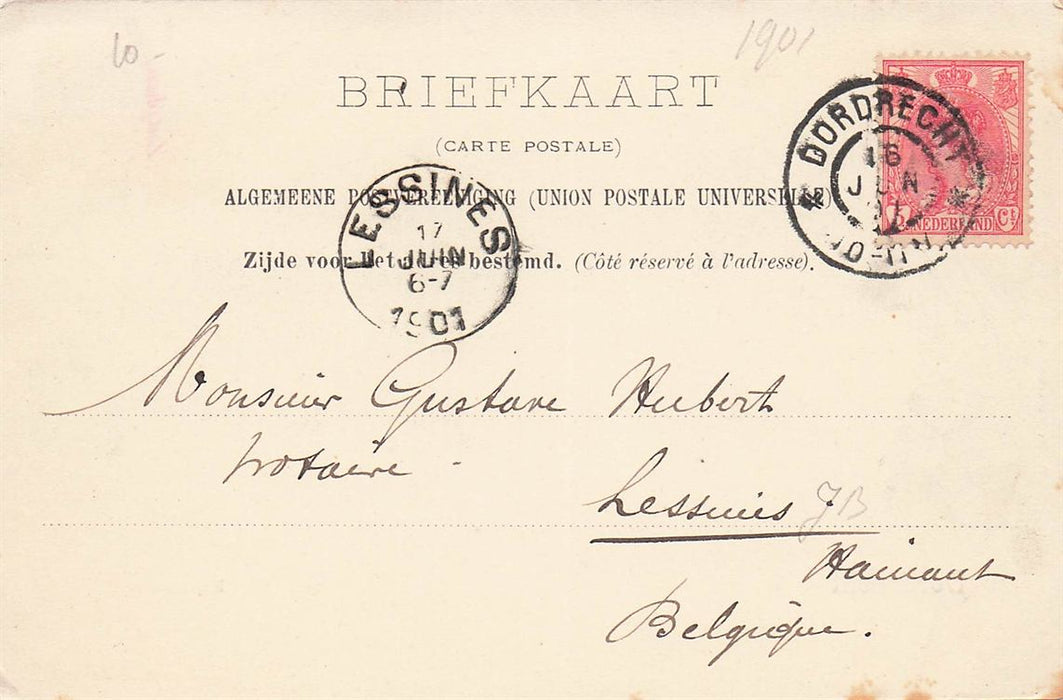 10-
1901
BRIEFKAART
(CARTE POSTALE)
ALGEMEENE POSTVEREENIGING (UNION POSTALE UNIVERSELLE)
Zijde voor het adres bestemd. (Côté réservé à l'adresse).
DORDRECHT
16
JUN
01
5 Ct
NEDERLAND
LESSINES
17
JUIN
6-7
1901
Monsieur Gustave Hubert
notaire
Lessines JB
Hainaut
Belgique.